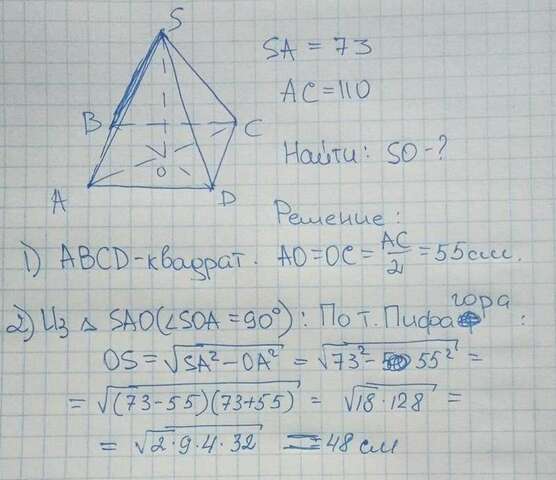 S
SA = 73
AC = 110
B
C
Найти: SO - ?
O
A
D
Решение:
1) ABCD - квадрат. AO = OC = AC/2 = 55 см.
2) Из △ SAO (∠SOA = 90°): По т. Пифагора:
OS = √(SA² - OA²) = √(73² - 55²) =
= √((73-55)(73+55)) = √(18·128) =
= √(2·9·4·32) = 48 см